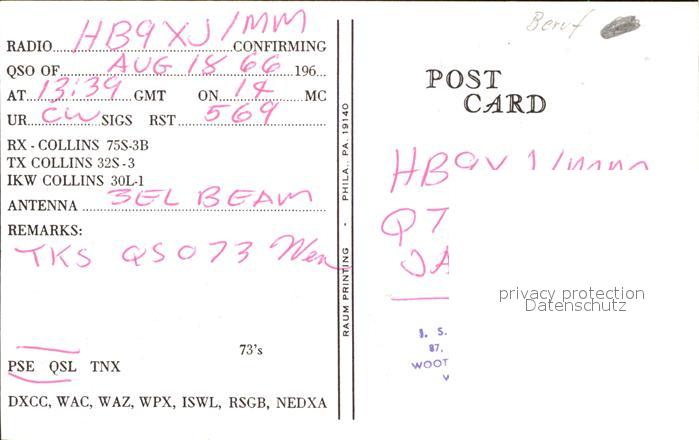 RADIO HB9XJ/MM CONFIRMING
QSO OF AUG 18 66 196
AT 13:39 GMT ON 14 MC
UR CW SIGS RST 569
RX - COLLINS 75S-3B
TX COLLINS 32S-3
IKW COLLINS 30L-1
ANTENNA 3EL BEAM
REMARKS:
TKS QSO 73
73's
PSE QSL TNX
DXCC, WAC, WAZ, WPX, ISWL, RSGB, NEDXA
RAUM PRINTING - PHILA., PA. 19140
Beruf
POST
CARD
HB9
Q
JA
privacy protection
Datenschutz
S.
87,
WOOT